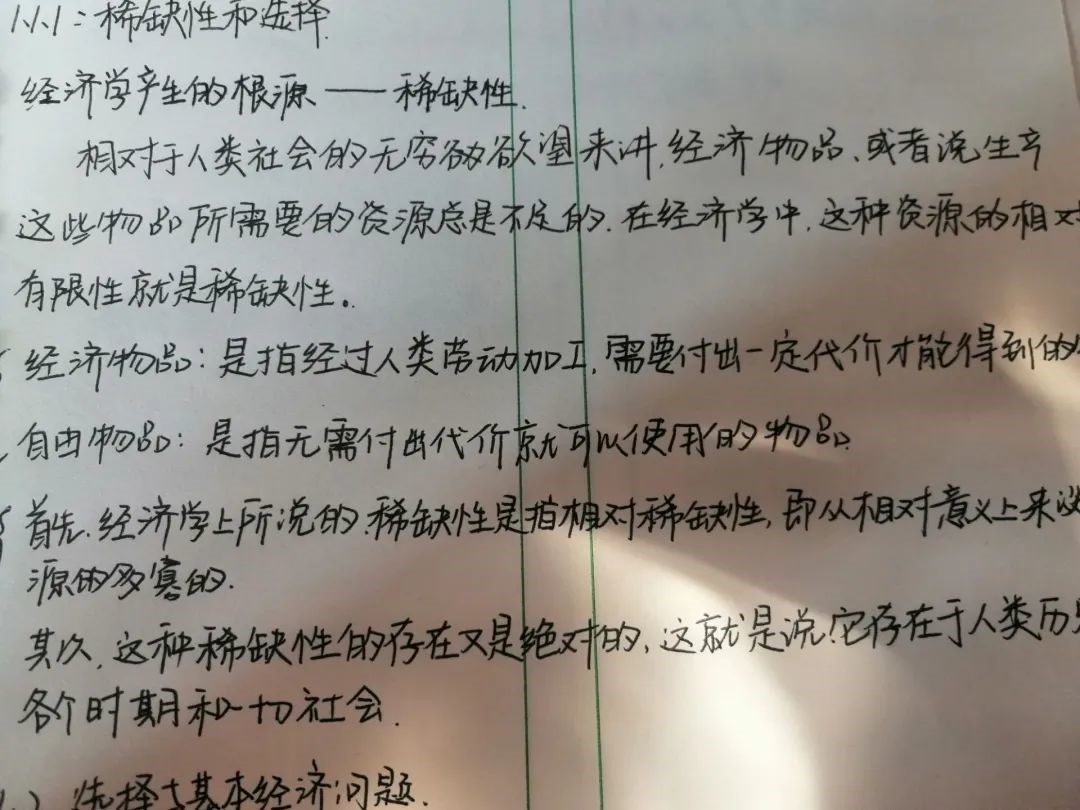 1.1.1：稀缺性和选择.
经济学产生的根源——稀缺性.
相对于人类社会的无穷欲望来讲,经济物品、或者说生产
这些物品所需要的资源总是不足的.在经济学中,这种资源的相对
有限性就是稀缺性。
经济物品：是指经过人类劳动加工,需要付出一定代价才能得到的
自由物品：是指无需付出代价就可以使用的物品
首先.经济学上所说的稀缺性是指相对稀缺性,即从相对意义上来
源的多寡的.
其次,这种稀缺性的存在又是绝对的,这就是说:它存在于人类历
各个时期和一切社会.
选择与基本经济问题.